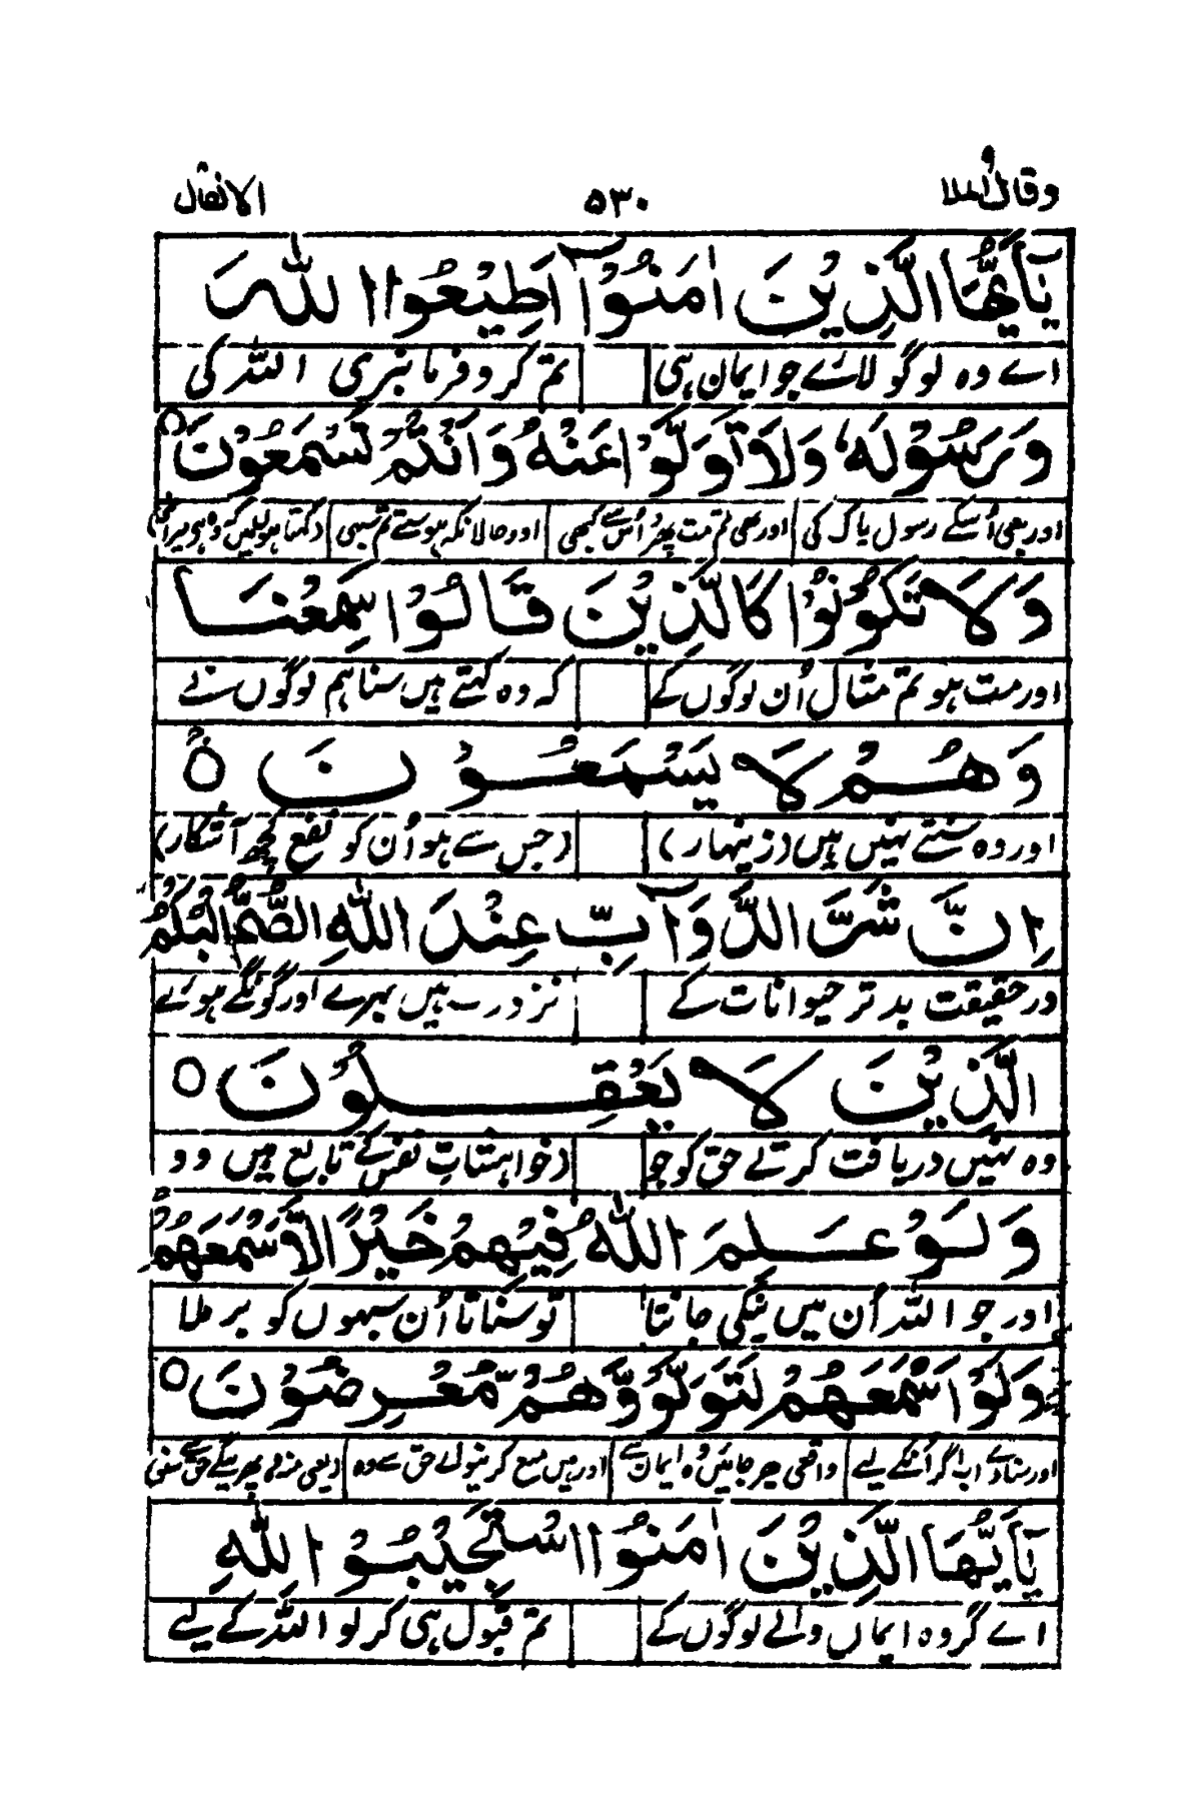 وقال الملا ۵۳۰ الانفال
يٰٓاَيُّهَا الَّذِيْنَ اٰمَنُوْٓا اَطِيْعُوا اللّٰهَ
اے وہ لوگو لائے جو ایمان ہی تم کرو فرمانبری اللہ کی
وَرَسُوْلَهٗ وَلَا تَوَلَّوْا عَنْهُ وَاَنْتُمْ تَسْمَعُوْنَ
اور بھی اُسکے رسول پاک کی اور بھی تم مت پھر اُس سے کبھی اور حالانکہ ہو سنتے تم سبھی
وَلَا تَكُوْنُوْا كَالَّذِيْنَ قَالُوْا سَمِعْنَا
اور مت ہو تم مثال اُن لوگوں کے کہ وہ کہتے ہیں سنا ہم لوگوں نے
وَهُمْ لَا يَسْمَعُوْنَ ○
اور وہ سنتے نہیں ہیں (زینہار) (جس سے ہو اُن کو نفع کچھ آشکار)
اِنَّ شَرَّ الدَّوَآبِّ عِنْدَ اللّٰهِ الصُّمُّ الْبُكْمُ
در حقیقت بدتر حیوانات کے نزد رب ہیں بہرے اور گونگے ہوئے
الَّذِيْنَ لَا يَعْقِلُوْنَ ○
وہ نہیں دریافت کرتے حق کو جو (خواہشات نفس کے تابع ہیں وو
وَلَوْ عَلِمَ اللّٰهُ فِيْهِمْ خَيْرًا لَّاَسْمَعَهُمْ
اور جو اللہ اُن میں نیکی جانتا تو سناتا اُن سبھوں کو برملا
وَلَوْ اَسْمَعَهُمْ لَتَوَلَّوْ وَّهُمْ مُّعْرِضُوْنَ ○
اور سنادے اب اگر اُنکے لیے واقعی پھر جائیں وہ ایمان سے اور ہیں منع کرنیوالے حق سے وہ
يٰٓاَيُّهَا الَّذِيْنَ اٰمَنُوا اسْتَجِيْبُوْا لِلّٰهِ
اے گروہ ایماں والے لوگوں کے تم قبول ہی کر لو اللہ کے لیے